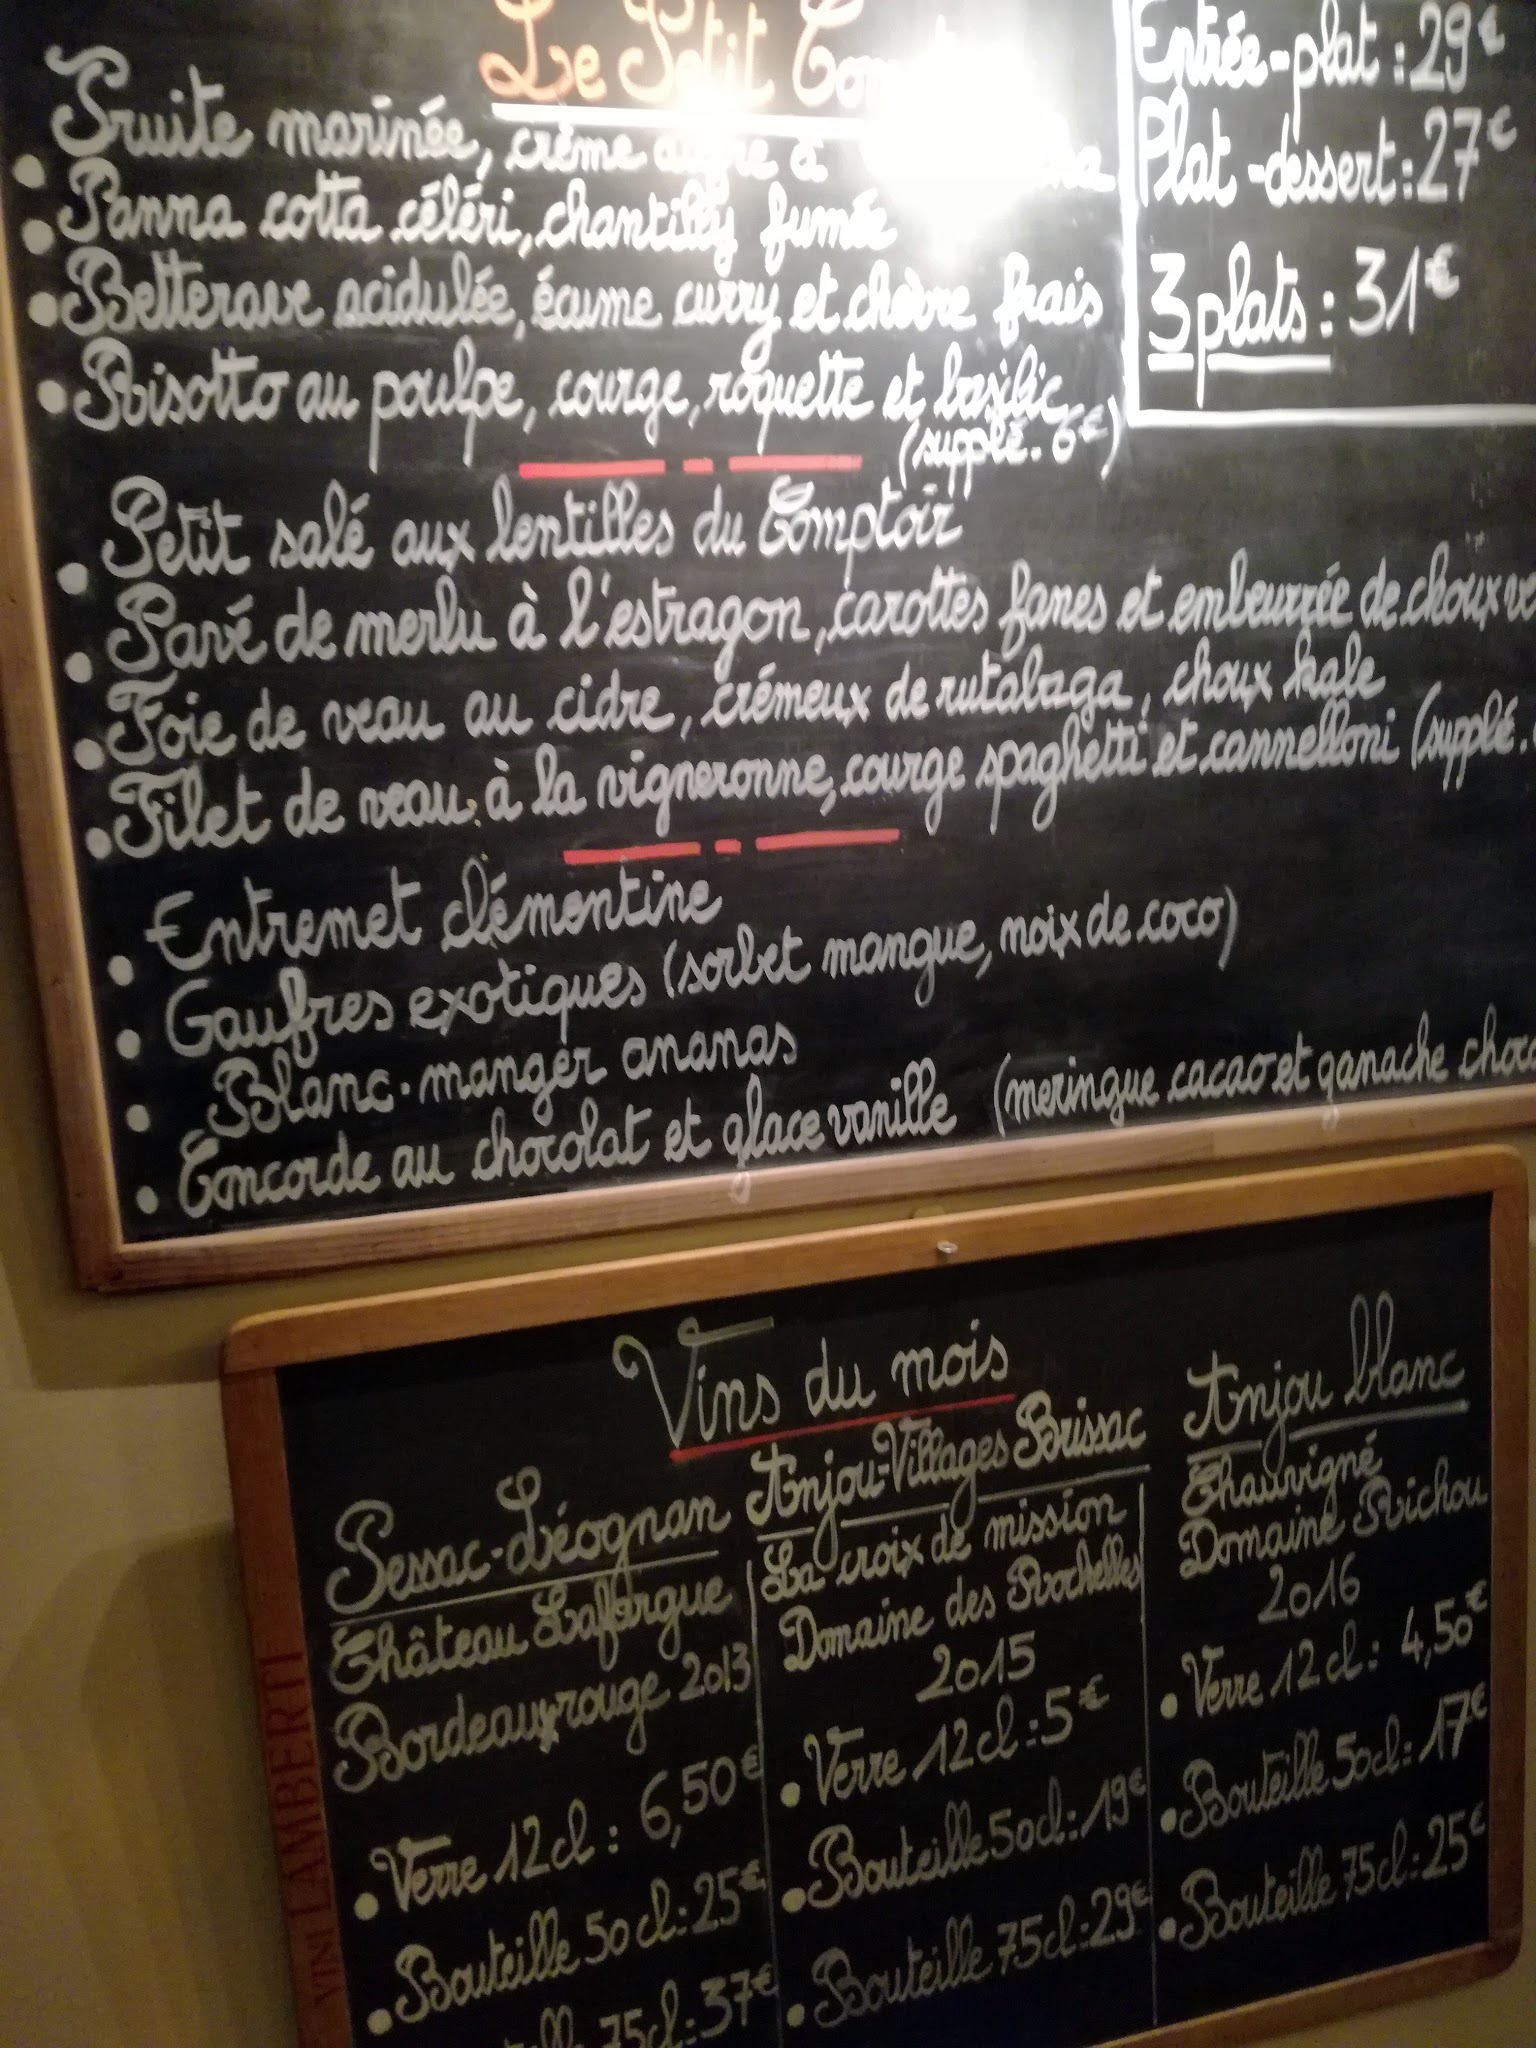 Le Petit
Entrée-plat : 29€
Plat-dessert : 27€
3 plats : 31€
Truite marinée, crème aigre à
Panna cotta céléri, chantilly fumée
Betterave acidulée, écume curry et chèvre frais
Risotto au poulpe, courge, roquette et basilic
(supplé. 6€)
Petit salé aux lentilles du Comptoir
Pavé de merlu à l'estragon, carottes fanes et embeurrée de choux
Foie de veau au cidre, crémeux de rutabaga, choux kale
Filet de veau à la vigneronne, courge spaghetti et cannelloni (supplé.
Entremet clémentine
Gaufres exotiques (sorbet mangue, noix de coco)
Blanc-manger ananas
Concorde au chocolat et glace vanille (meringue cacao et ganache
Vins du mois
Pessac-Léognan
Château Lafargue
Bordeaux rouge 2013
Verre 12cl : 6,50€
Bouteille 50cl : 25€
75cl : 37€
Anjou-Villages Brissac
La croix de mission
Domaine des Rochelles
2015
Verre 12cl : 5€
Bouteille 50cl : 19€
Bouteille 75cl : 29€
Anjou blanc
Chauvigné
Domaine Richou
2016
Verre 12cl : 4,50€
Bouteille 50cl : 17€
Bouteille 75cl : 25€
VINI LAMBERTI